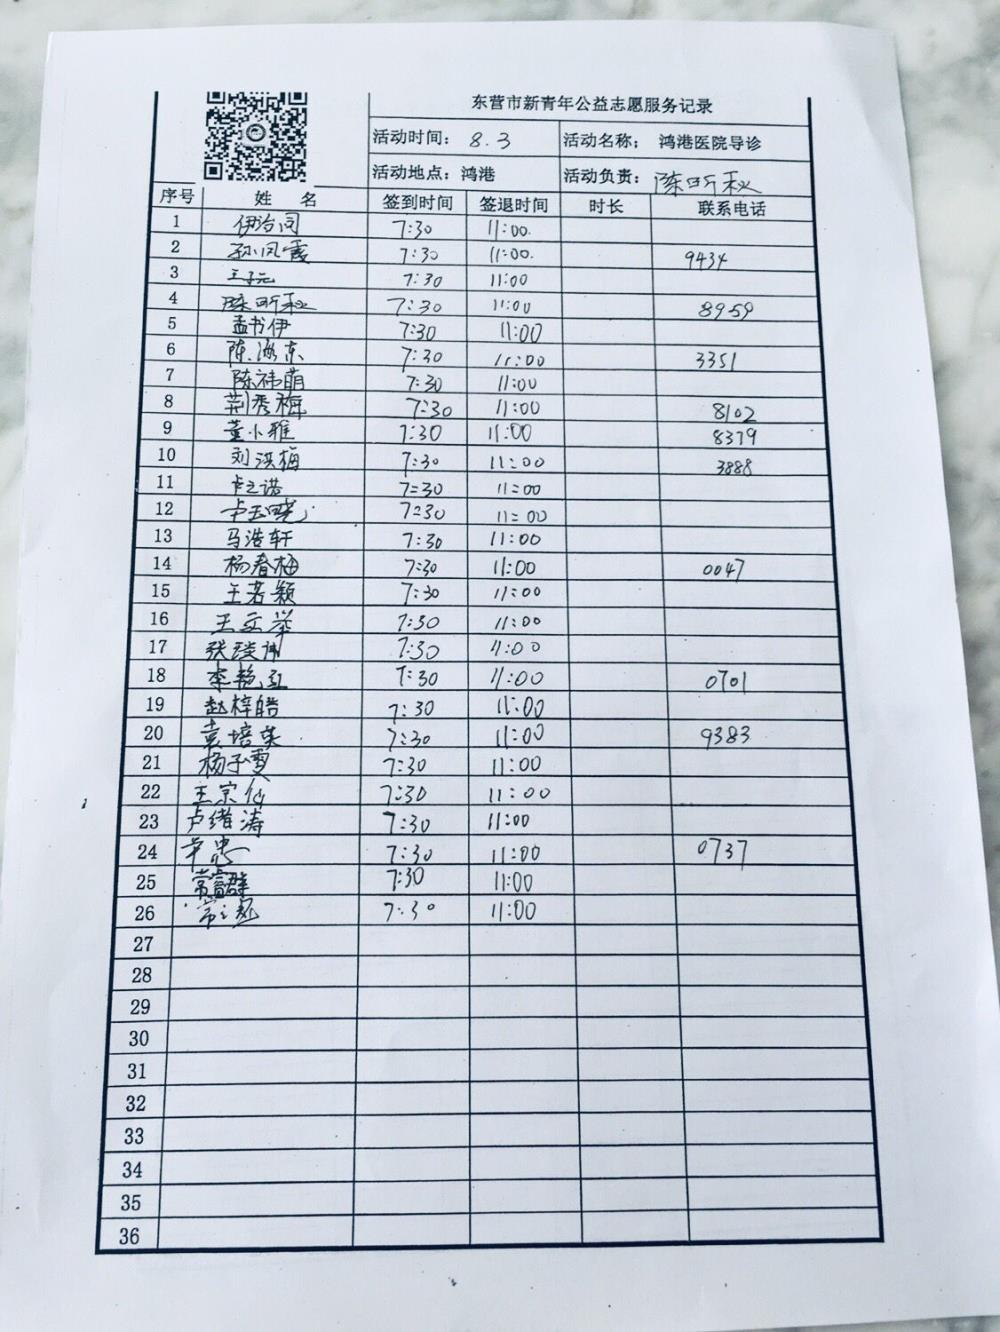 东营市新青年公益志愿服务记录
活动时间： 8.3 活动名称： 鸿港医院导诊
活动地点：鸿港 活动负责：陈昕秋
序号 姓 名 签到时间 签退时间 时长 联系电话
1 伊治同 7:30 11:00.
2 孙凤霞 7:30 11:00. 9434
3 王子元 7:30 11:00
4 陈昕秋 7:30 11:00 8959
5 孟书伊 7:30 11:00
6 陈海东 7:30 11:00 3351
7 陈祎萌 7:30 11:00
8 荆秀梅 7:30 11:00 8102
9 董小雅 7:30 11:00 8379
10 刘洪梅 7:30 11:00 3888
11 卢之诺 7:30 11:00
12 卢玉晓 7:30 11:00
13 马浩轩 7:30 11:00
14 杨春梅 7:30 11:00 0047
15 王若颖 7:30 11:00
16 王文举 7:30 11:00
17 张 7:30 11:00
18 李艳红 7:30 11:00 0701
19 赵梓皓 7:30 11:00
20 袁培英 7:30 11:00 9383
21 杨子雯 7:30 11:00
22 王宗仙 7:30 11:00
23 卢绪涛 7:30 11:00
24 7:30 11:00 0737
25 常富群 7:30 11:00
26 7:30 11:00
27
28
29
30
31
32
33
34
35
36